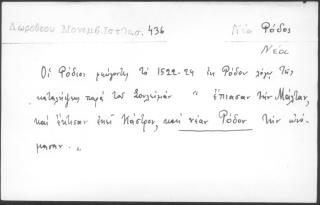 Δωροθεου Μονεμβ. Ιστ 436
Νέα Ρόδος
Νέα
Οἱ Ρόδιοι φεύγοντες τὸ 1522-24 ἐκ Ρόδου λόγῳ τῆς
καταλήψεως παρὰ τοῦ Σουλεϊμὰν " ἔπιασαν τὴν Μάλταν,
καὶ ἔκτισαν ἐκεῖ Κάστρον, καὶ νέαν Ρόδον τὴν ὠνό-
μασαν. "